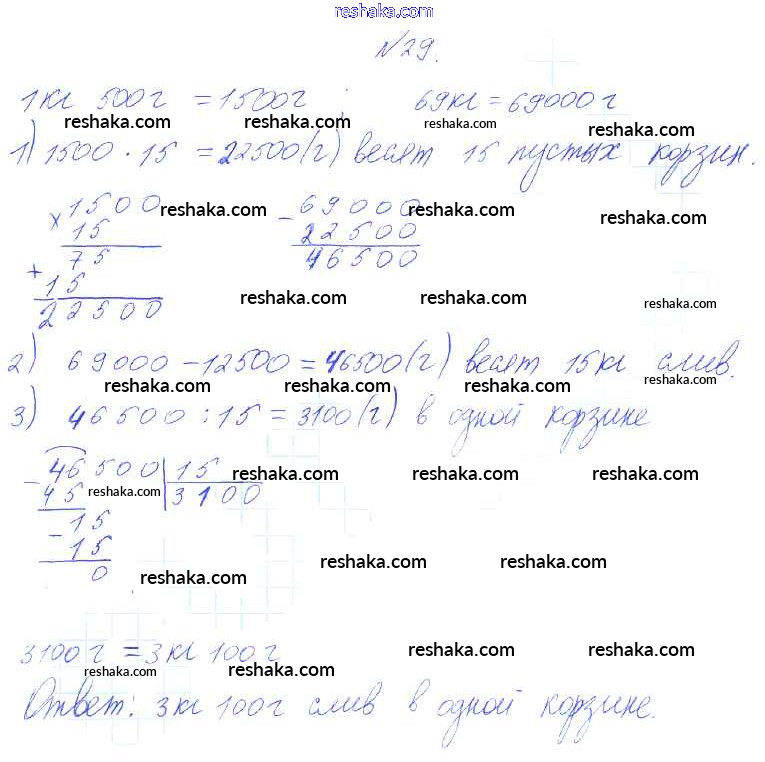 reshaka.com
№29.
1кг 500г = 1500г 69кг = 69000г
reshaka.com reshaka.com reshaka.com reshaka.com
1) 1500 · 15 = 22500(г) весят 15 пустых корзин.
× 1500 reshaka.com - 69000 reshaka.com reshaka.com
15 22500
75 46500
+ 15 reshaka.com reshaka.com reshaka.com
22500
2) 69000 - 12500 = 46500(г) весят 15кг слив.
reshaka.com reshaka.com reshaka.com reshaka.com
3) 46500 : 15 = 3100(г) в одной корзине
- 46500 | 15 reshaka.com reshaka.com
45 reshaka.com 3100 reshaka.com reshaka.com
- 15
15
0 reshaka.com reshaka.com reshaka.com
3100г = 3кг 100г reshaka.com reshaka.com
reshaka.com reshaka.com reshaka.com reshaka.com
Ответ: 3кг 100г слив в одной корзине.